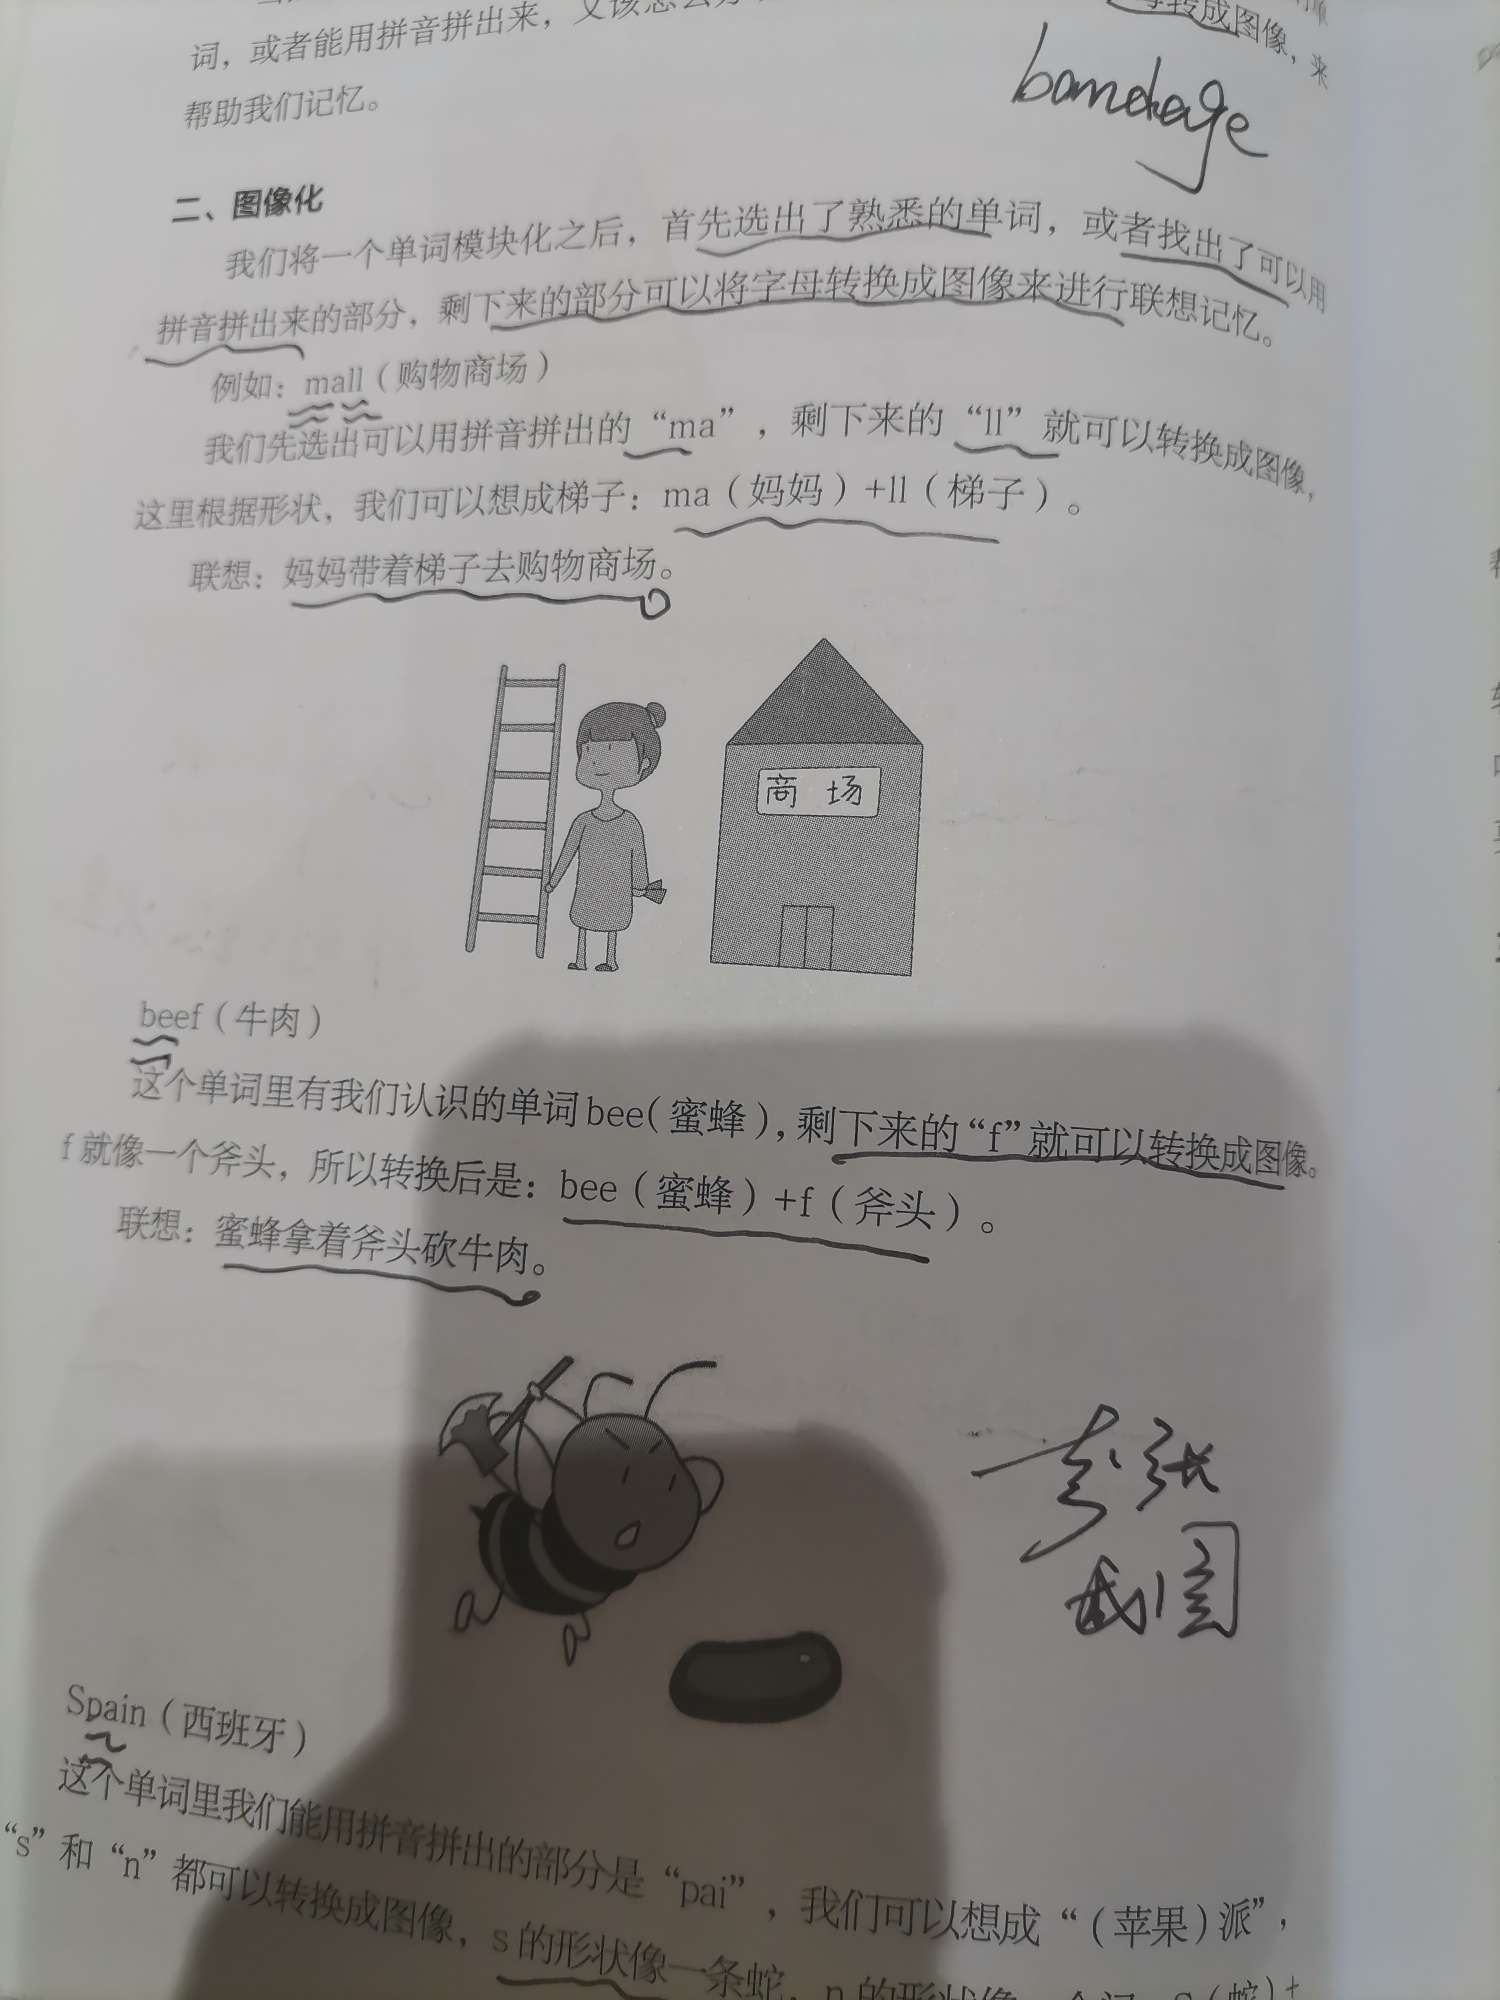 词，或者能用拼音拼出来，又该怎么办
转成图像，来
帮助我们记忆。
bandage
二、图像化
我们将一个单词模块化之后，首先选出了熟悉的单词，或者找出了可以用
拼音拼出来的部分，剩下来的部分可以将字母转换成图像来进行联想记忆。
例如：mall（购物商场）
我们先选出可以用拼音拼出的“ma”，剩下来的“ll”就可以转换成图像，
这里根据形状，我们可以想成梯子：ma（妈妈）+ll（梯子）。
联想：妈妈带着梯子去购物商场。
商 场
beef（牛肉）
这个单词里有我们认识的单词bee(蜜蜂)，剩下来的“f”就可以转换成图像。
f就像一个斧头，所以转换后是：bee（蜜蜂）+f（斧头）。
联想：蜜蜂拿着斧头砍牛肉。
Spain（西班牙）
这个单词里我们能用拼音拼出的部分是“pai”，我们可以想成“（苹果）派”，
“s”和“n”都可以转换成图像，s的形状像一条蛇，n的形状像一个门，S（蛇）+